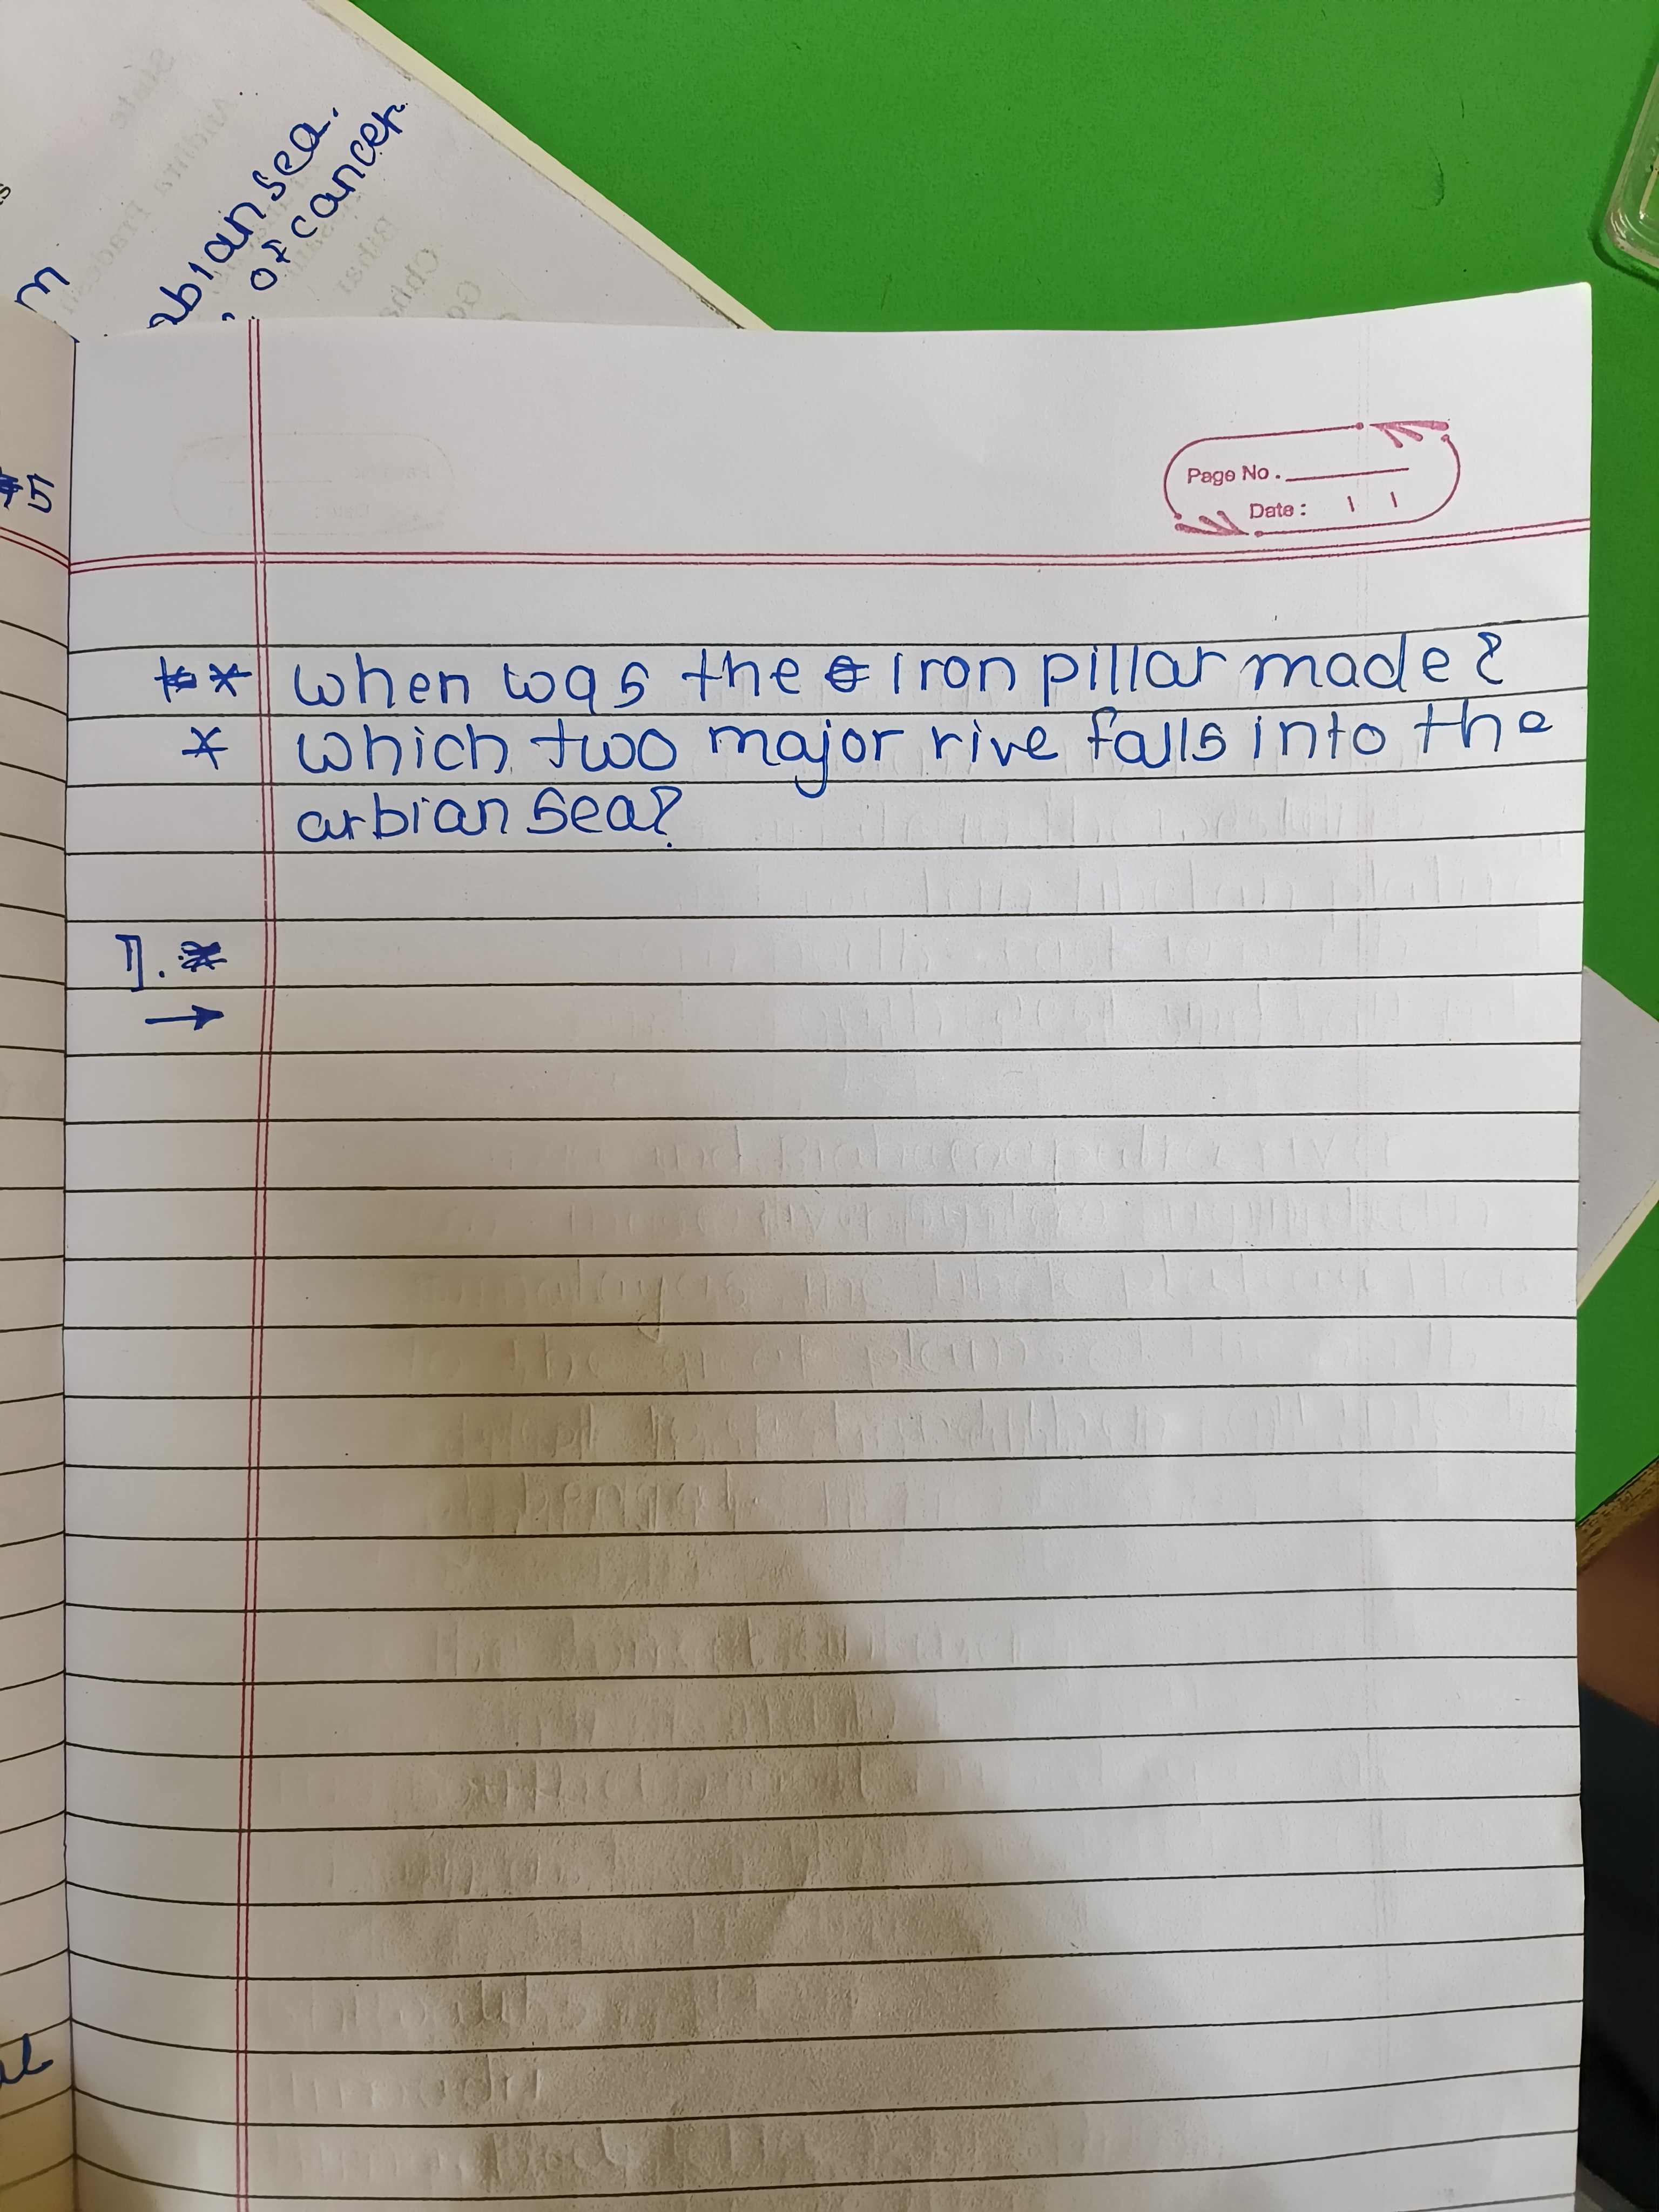 of cancer
Page No.
Date :
when was the Iron pillar made?
* which two major rive falls into the
arbian sea?
1.
→